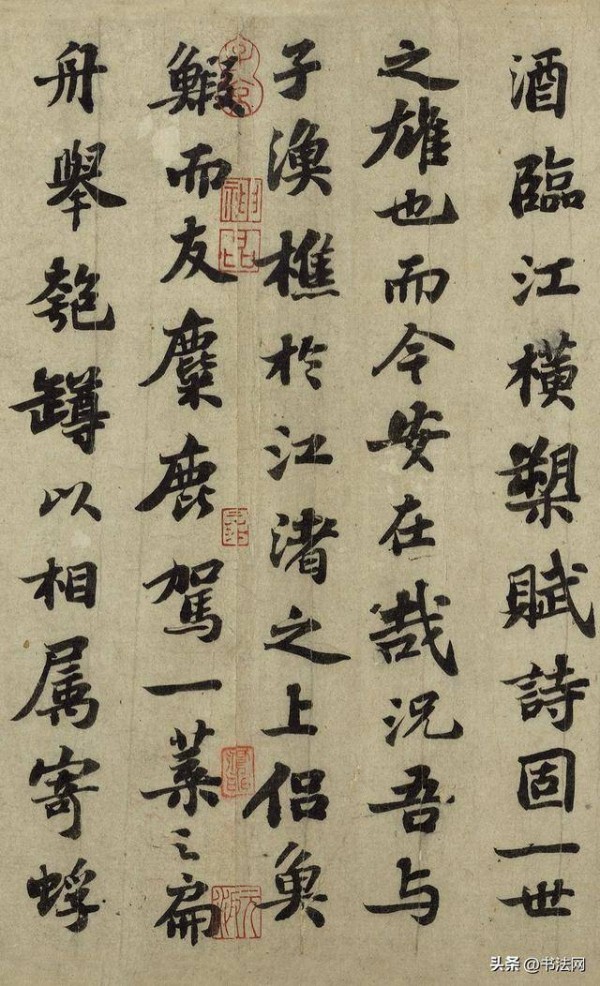 酒臨江橫槊賦詩固一世
之雄也而今安在哉況吾与
子漁樵於江渚之上侶魚
鰕而友麋鹿駕一葉之扁
舟舉匏罇以相属寄蜉
头条 @书法网